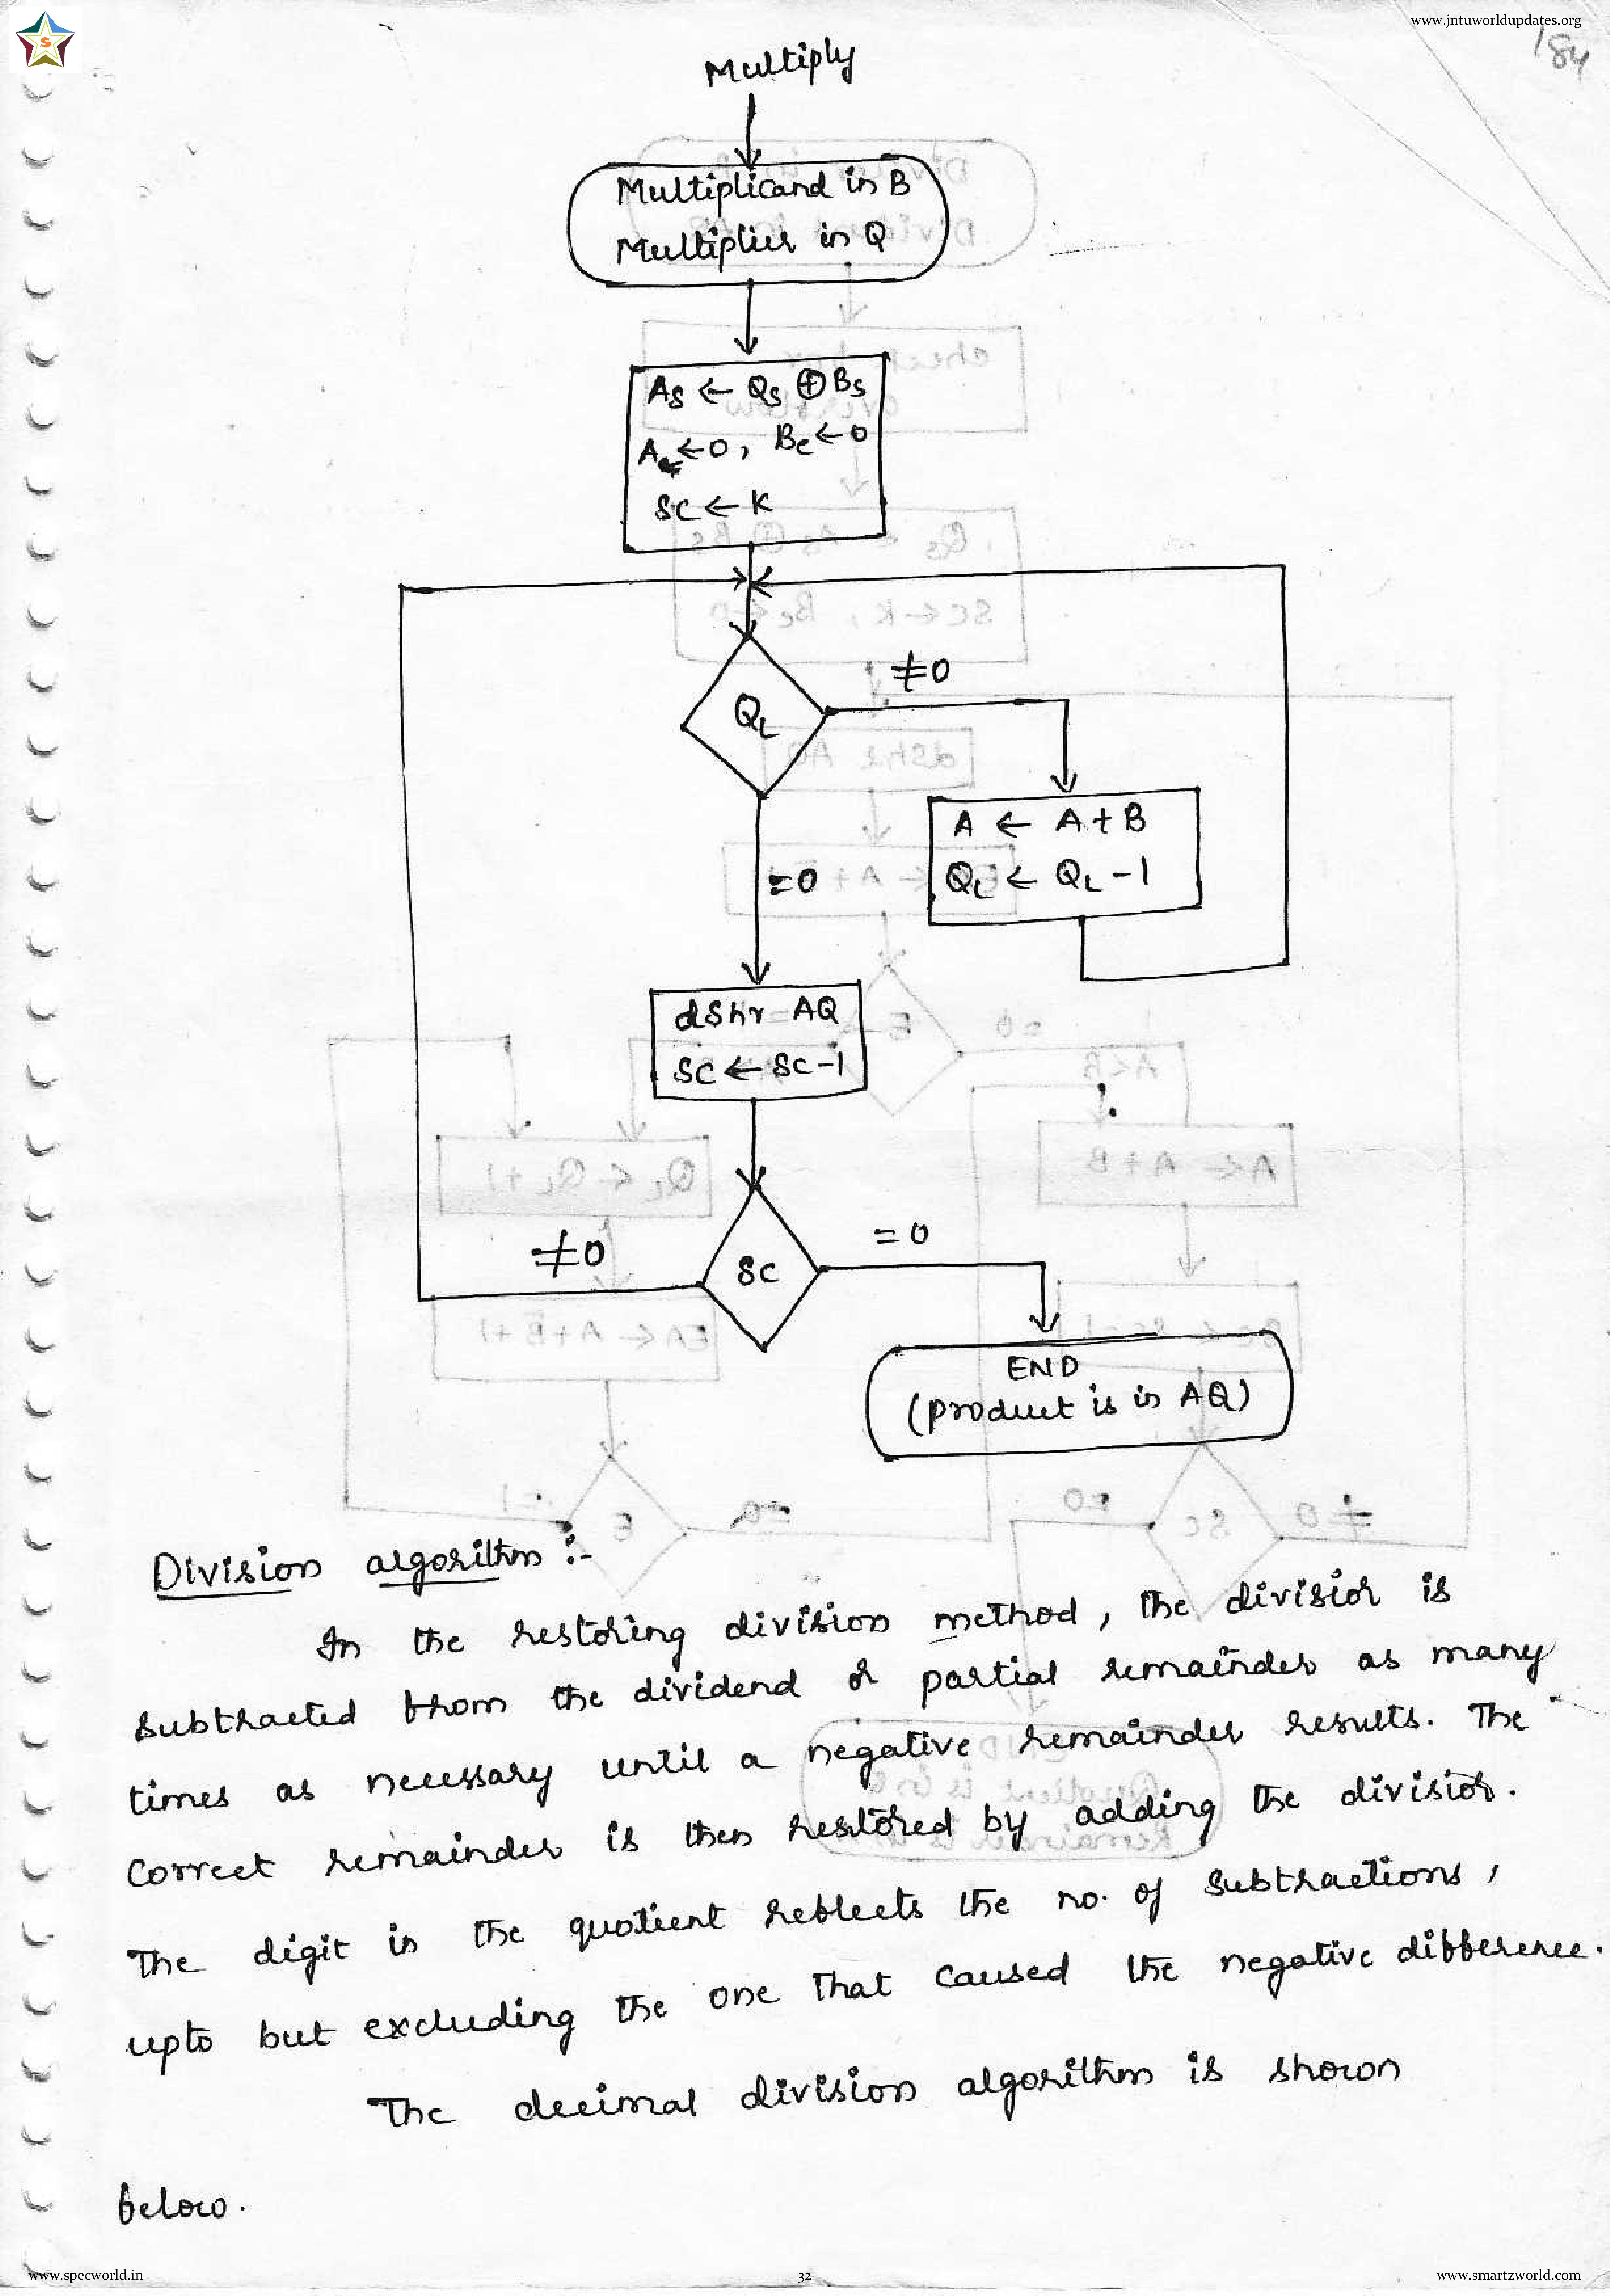 www.jntuworldupdates.org
184
S
Multiply
Multiplicand in B
Multiplier in Q
As ← Qs ⊕ Bs
A ← 0, Bc ← 0
SC ← K
QL
≠0
A ← A + B
QL ← QL - 1
=0
dshr AQ
SC ← SC - 1
≠0
SC
=0
END
(product is in AQ)
Division algorithm :-
In the restoring division method, the divisior is
subtracted from the dividend or partial remainder as many
times as necessary until a negative remainder results. The
correct remainder is then restored by adding the divisior.
The digit in the quotient reflects the no. of subtractions,
upto but excluding the one that caused the negative difference.
The decimal division algorithm is shown
below.
www.specworld.in
32
www.smartzworld.com